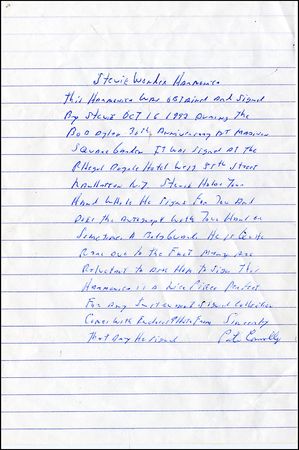 Stevie Wonder Harmonica
This Harmonica was obtained and signed
By Stevie Oct 16 1992 During the
Bob Dylan 30th Anniversary at Madison
Square Garden It was signed at the
Rhegal Royale Hotel West 55th Street
Manhattan N.Y. Stevie Holds Your
Hand While He Signs For You And
Does the Autograph with Your Hand or
Sometimes A Bodyguard. He is Quite
Rare Due to the Fact Many Are
Reluctant to Ask Him To Sign This
Harmonica is A Nice Piece Perfect
For Any Instrument Signed Collection
Comes with Photo From Sincerely
That Day He signed Pat Connolly